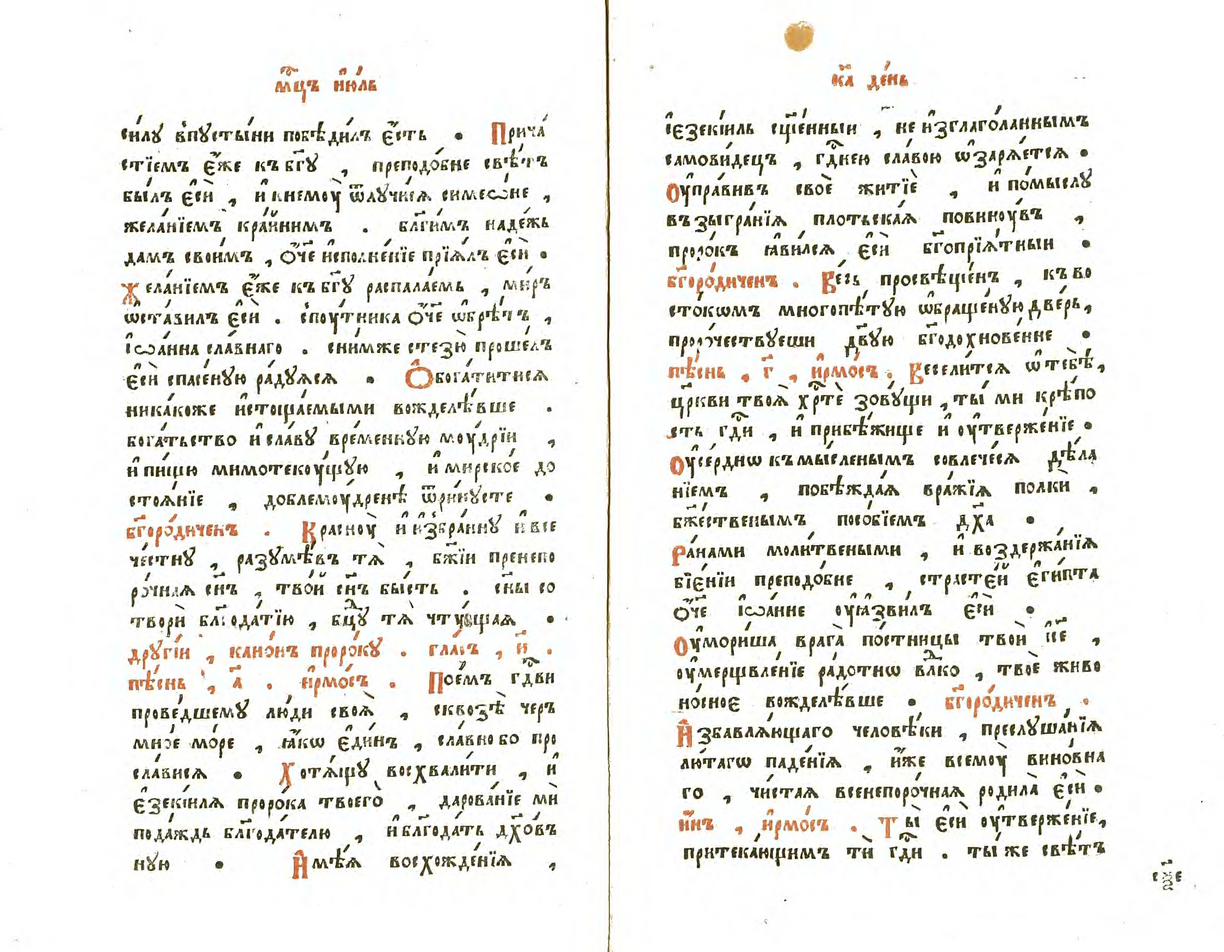 мⷭ҇цъ і҆ю́ль
си́лу впусты́ни побѣди́лъ є҆́сть . Прича́
стїемъ є҆́же къ бг҃у , преподо́бне свѣ́тъ
бы́лъ є҆сѝ , и҆ кнемꙋ̀ ѿлꙋчи́сѧ симеѡ́не ,
жела́нїемъ кра́йнимъ . бл҃ги́мъ наде́жь
дамъ свои́мъ , ѻ҆́ч҃е и҆сполне́нїе прїѧ́лъ є҆сѝ .
Жела́нїемъ є҆́же къ бг҃у распала́емь , ми́ръ
ѡ҆ста́вилъ є҆сѝ . спꙋ́тника ѻ҆́ч҃е ѡ҆брѣ́тъ ,
і҆ѡа́нна сла́внаго . сни́мже стезю̀ проше́лъ
є҆сѝ спасе́ную ра́дуѧсѧ . Ѻ҆богати́тисѧ
ника́коже и҆стоща́емыми вожделѣ́вше .
бога́тьство и҆ сла́ву вре́менную мꙋ́дрїи ,
и҆ пи́щю мимотекꙋ́щую , и҆ мирско́е до
стоѧ́нїе , доблемꙋ́дренѣ ѿри́нусте .
бг҃оро́диченъ . Краснꙋ̀ и҆ и҆збра́нну и҆ все
че́стну , разумѣ́въ тѧ̀ , бж҃їи пренепо
ро́чнаѧ сн҃ъ , тво́й сн҃ъ бы́сть . сн҃ы со
творѝ бл҃года́тїю , бц҃у тѧ̀ чтꙋ́щаѧ .
дрꙋгі́и , кано́нъ проро́ку . гла́съ , и҃ .
пѣ́снь , а҃ . і҆рмо́съ . Пое́мъ гдⷭ҇ви
прове́дшему лю́ди своѧ̀ , сквозѣ̀ чер
мно́е мо́ре , ꙗ҆́кѡ є҆ди́нъ , сла́вно бо про
сла́висѧ . Хотѧ́щу восхвали́ти , и҆
є҆зекі́илѧ проро́ка твоего̀ , дарова́нїе ми
пода́ждь бл҃года́телю , и҆ бл҃года́ть дх҃о́в
ную . И҆мѣ́ѧ восхожде́нїѧ ,
к҃а де́нь
і҆езекі́иль сщ҃е́нныи , не и҆зглаго́ланнымъ
самови́децъ , гдⷭ҇нею сла́вою ѡ҆зарѧ́етсѧ .
Оу҆пра́вивъ своѐ житїѐ , и҆ по́мыслу
възыгра́нїѧ пло́тьскаѧ повинꙋ́въ ,
проро́къ ꙗ҆ви́лсѧ є҆сѝ бг҃опрїѧ́тныи .
бг҃оро́диченъ . Ве́сь просвѣще́нъ , къ во
сто́кѡмъ многопѣ́тую ѡ҆браще́ную две́рь,
проро́чествуеши двꙋ́ю бг҃одохнове́нне .
пѣ́снь , г҃ , і҆рмо́съ . Весели́тсѧ ѡ҆ тебѣ̀,
цр҃кви твоѧ̀ хрⷭ҇тѐ зову́щи , ты́ ми крѣ́по
сть гдⷭ҇и , и҆ прибѣ́жище и҆ ᲂу҆твержде́нїе .
Оу҆се́рднѡ къ мы́сленымъ совлече́сѧ дѣ́ла
нїемъ , побѣжда́ѧ вра́жїѧ полки̑ ,
бж҃е́ственымъ посо́бїемъ дх҃а .
Ра́нами моли́твеными , и҆ воздержа́нїѧ
бїе́нїи преподо́бне , страсте́й є҆гі́пта
ѻ҆́ч҃е і҆ѡа́нне ᲂу҆ꙗзви́лъ є҆сѝ .
Оу҆мори́ша врага̀ по́стницы твоѝ ,
ᲂу҆мерщвле́нїе ра́дотнѡ влⷣко , твоѐ живо
но́сное вожделѣ́вше . бг҃оро́диченъ .
И҆збавлѧ́ющаго человѣ́ки , преслу́шанїѧ
лю́тагѡ паде́нїѧ , и҆́же всемꙋ̀ вино́вна
го , чи́стаѧ всенепоро́чнаѧ родила̀ є҆сѝ .
и҆́нъ , і҆рмо́съ . Ты̀ є҆сѝ ᲂу҆твержде́нїе,
притека́ющимъ тѝ гдⷭ҇и . ты́ же свѣ́тъ